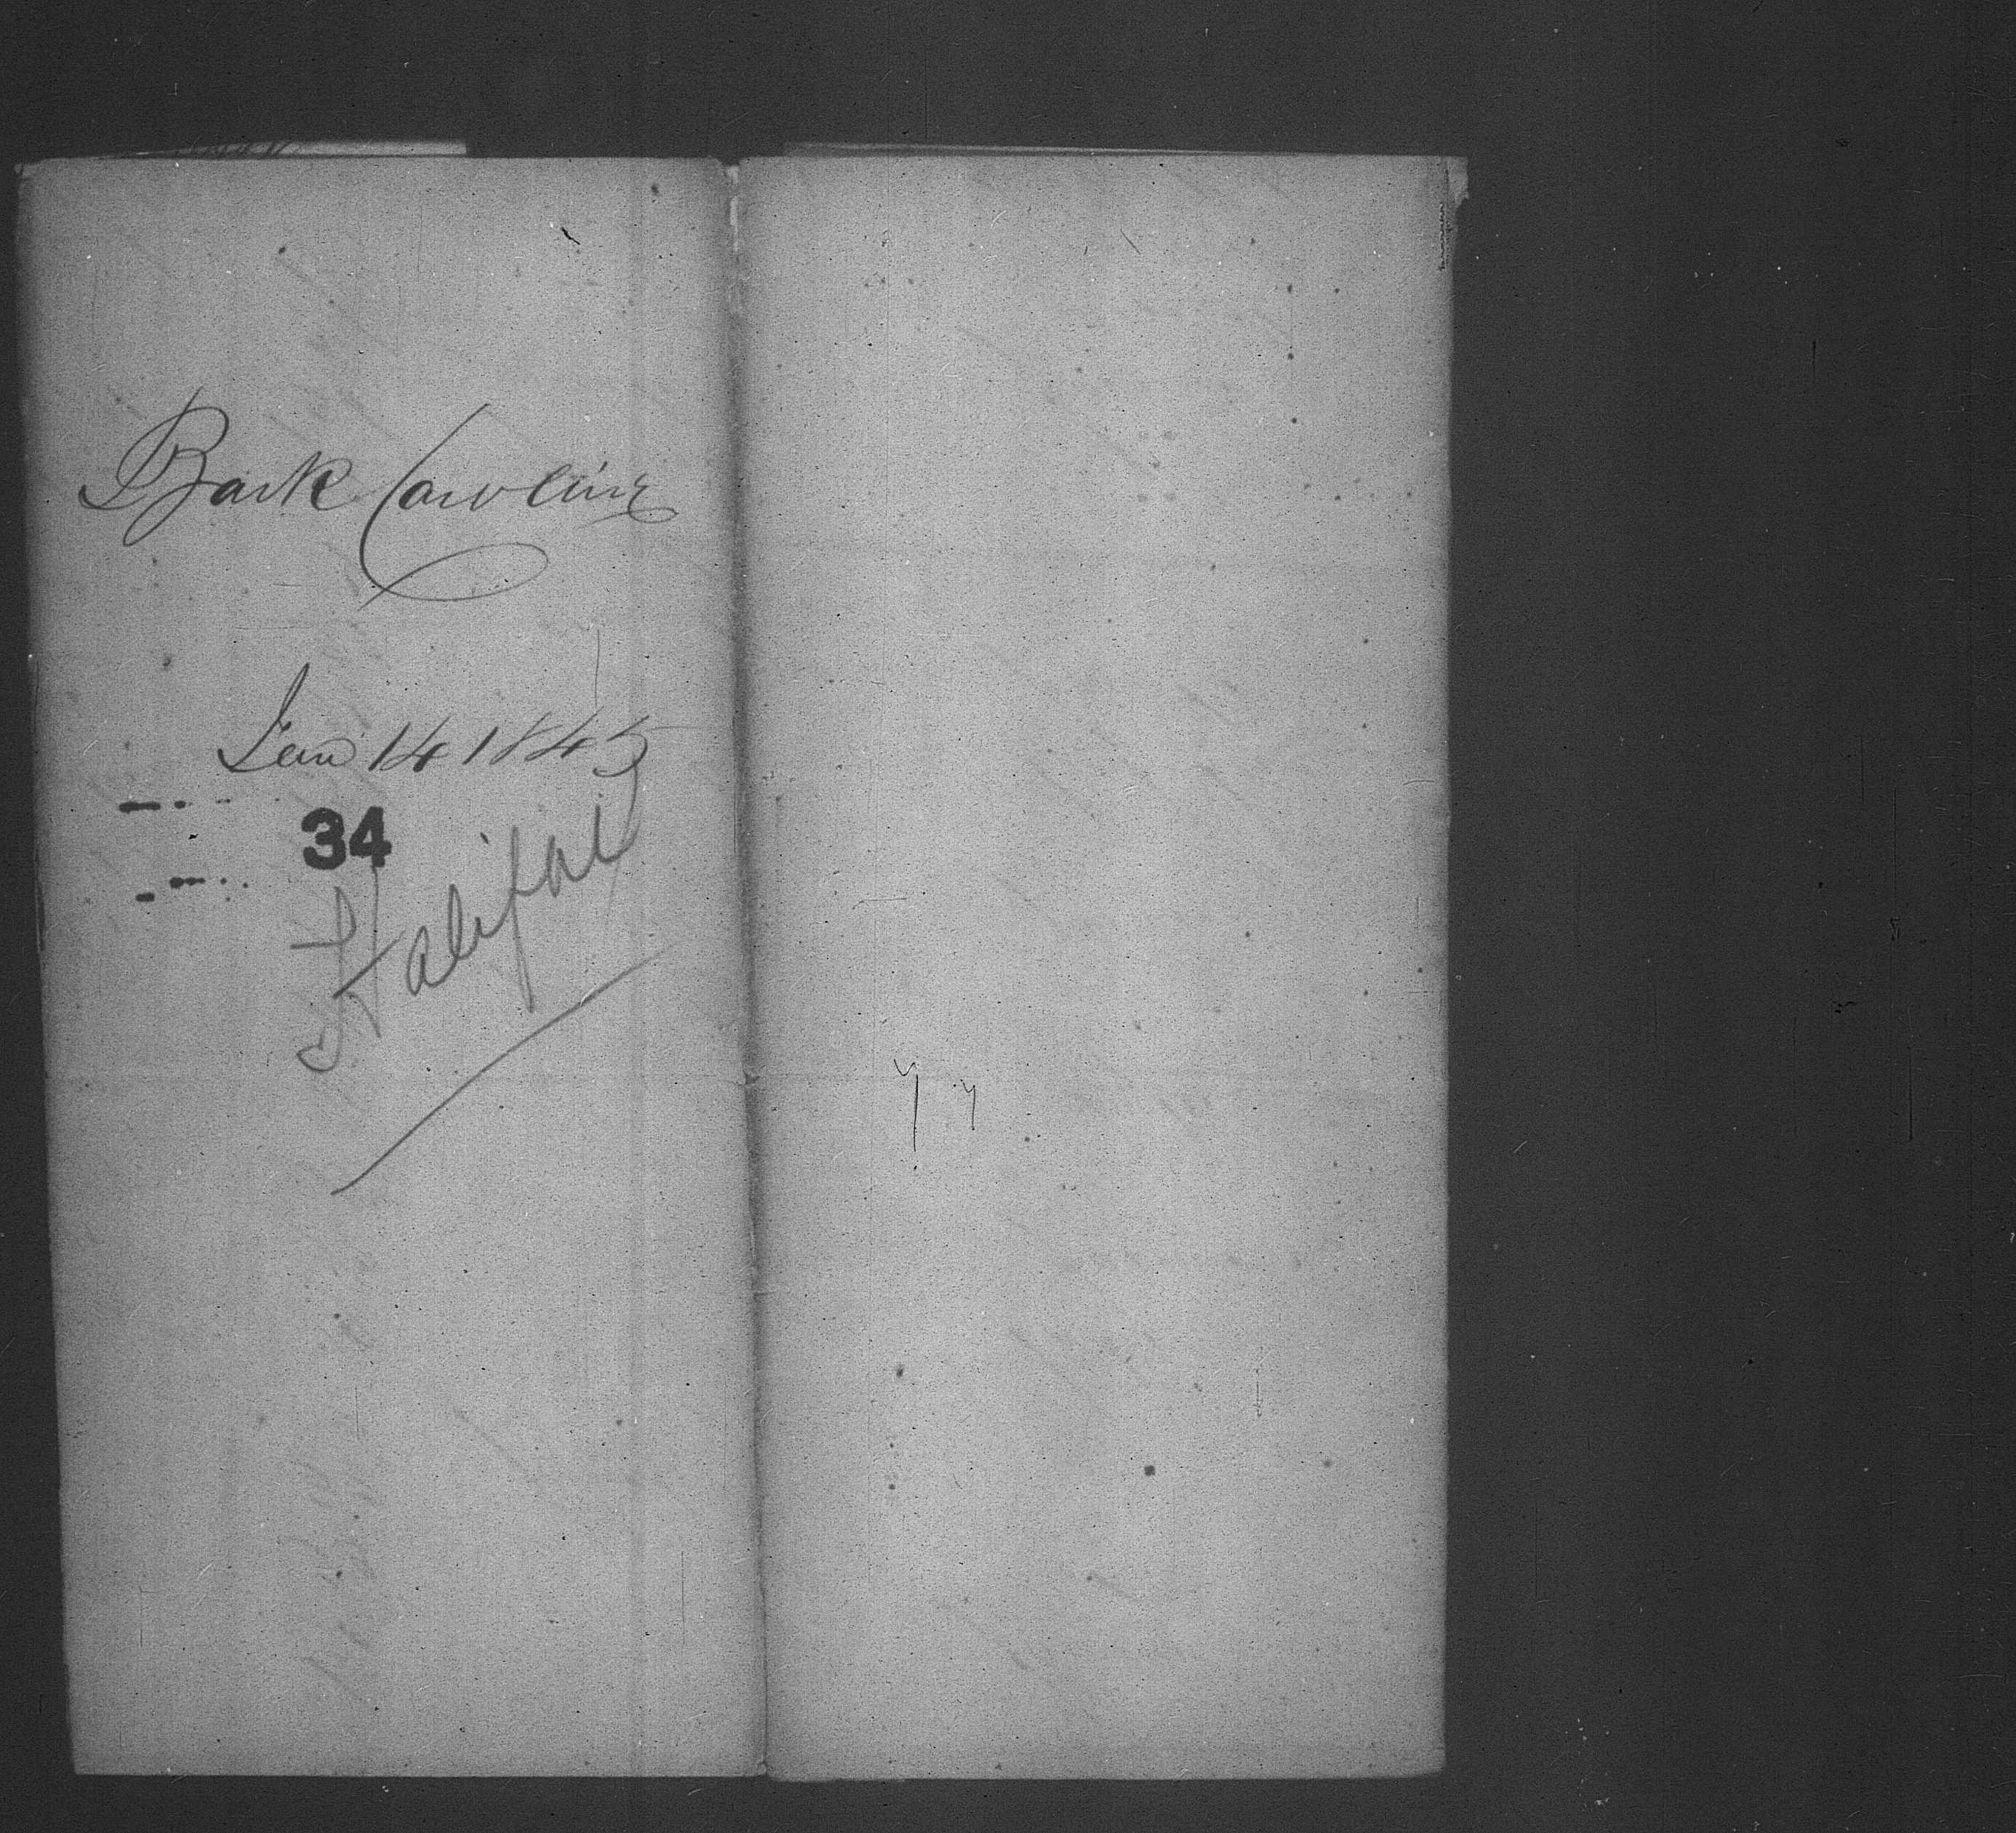 Bark Caroline
Jan 14 1845
34
Halifax